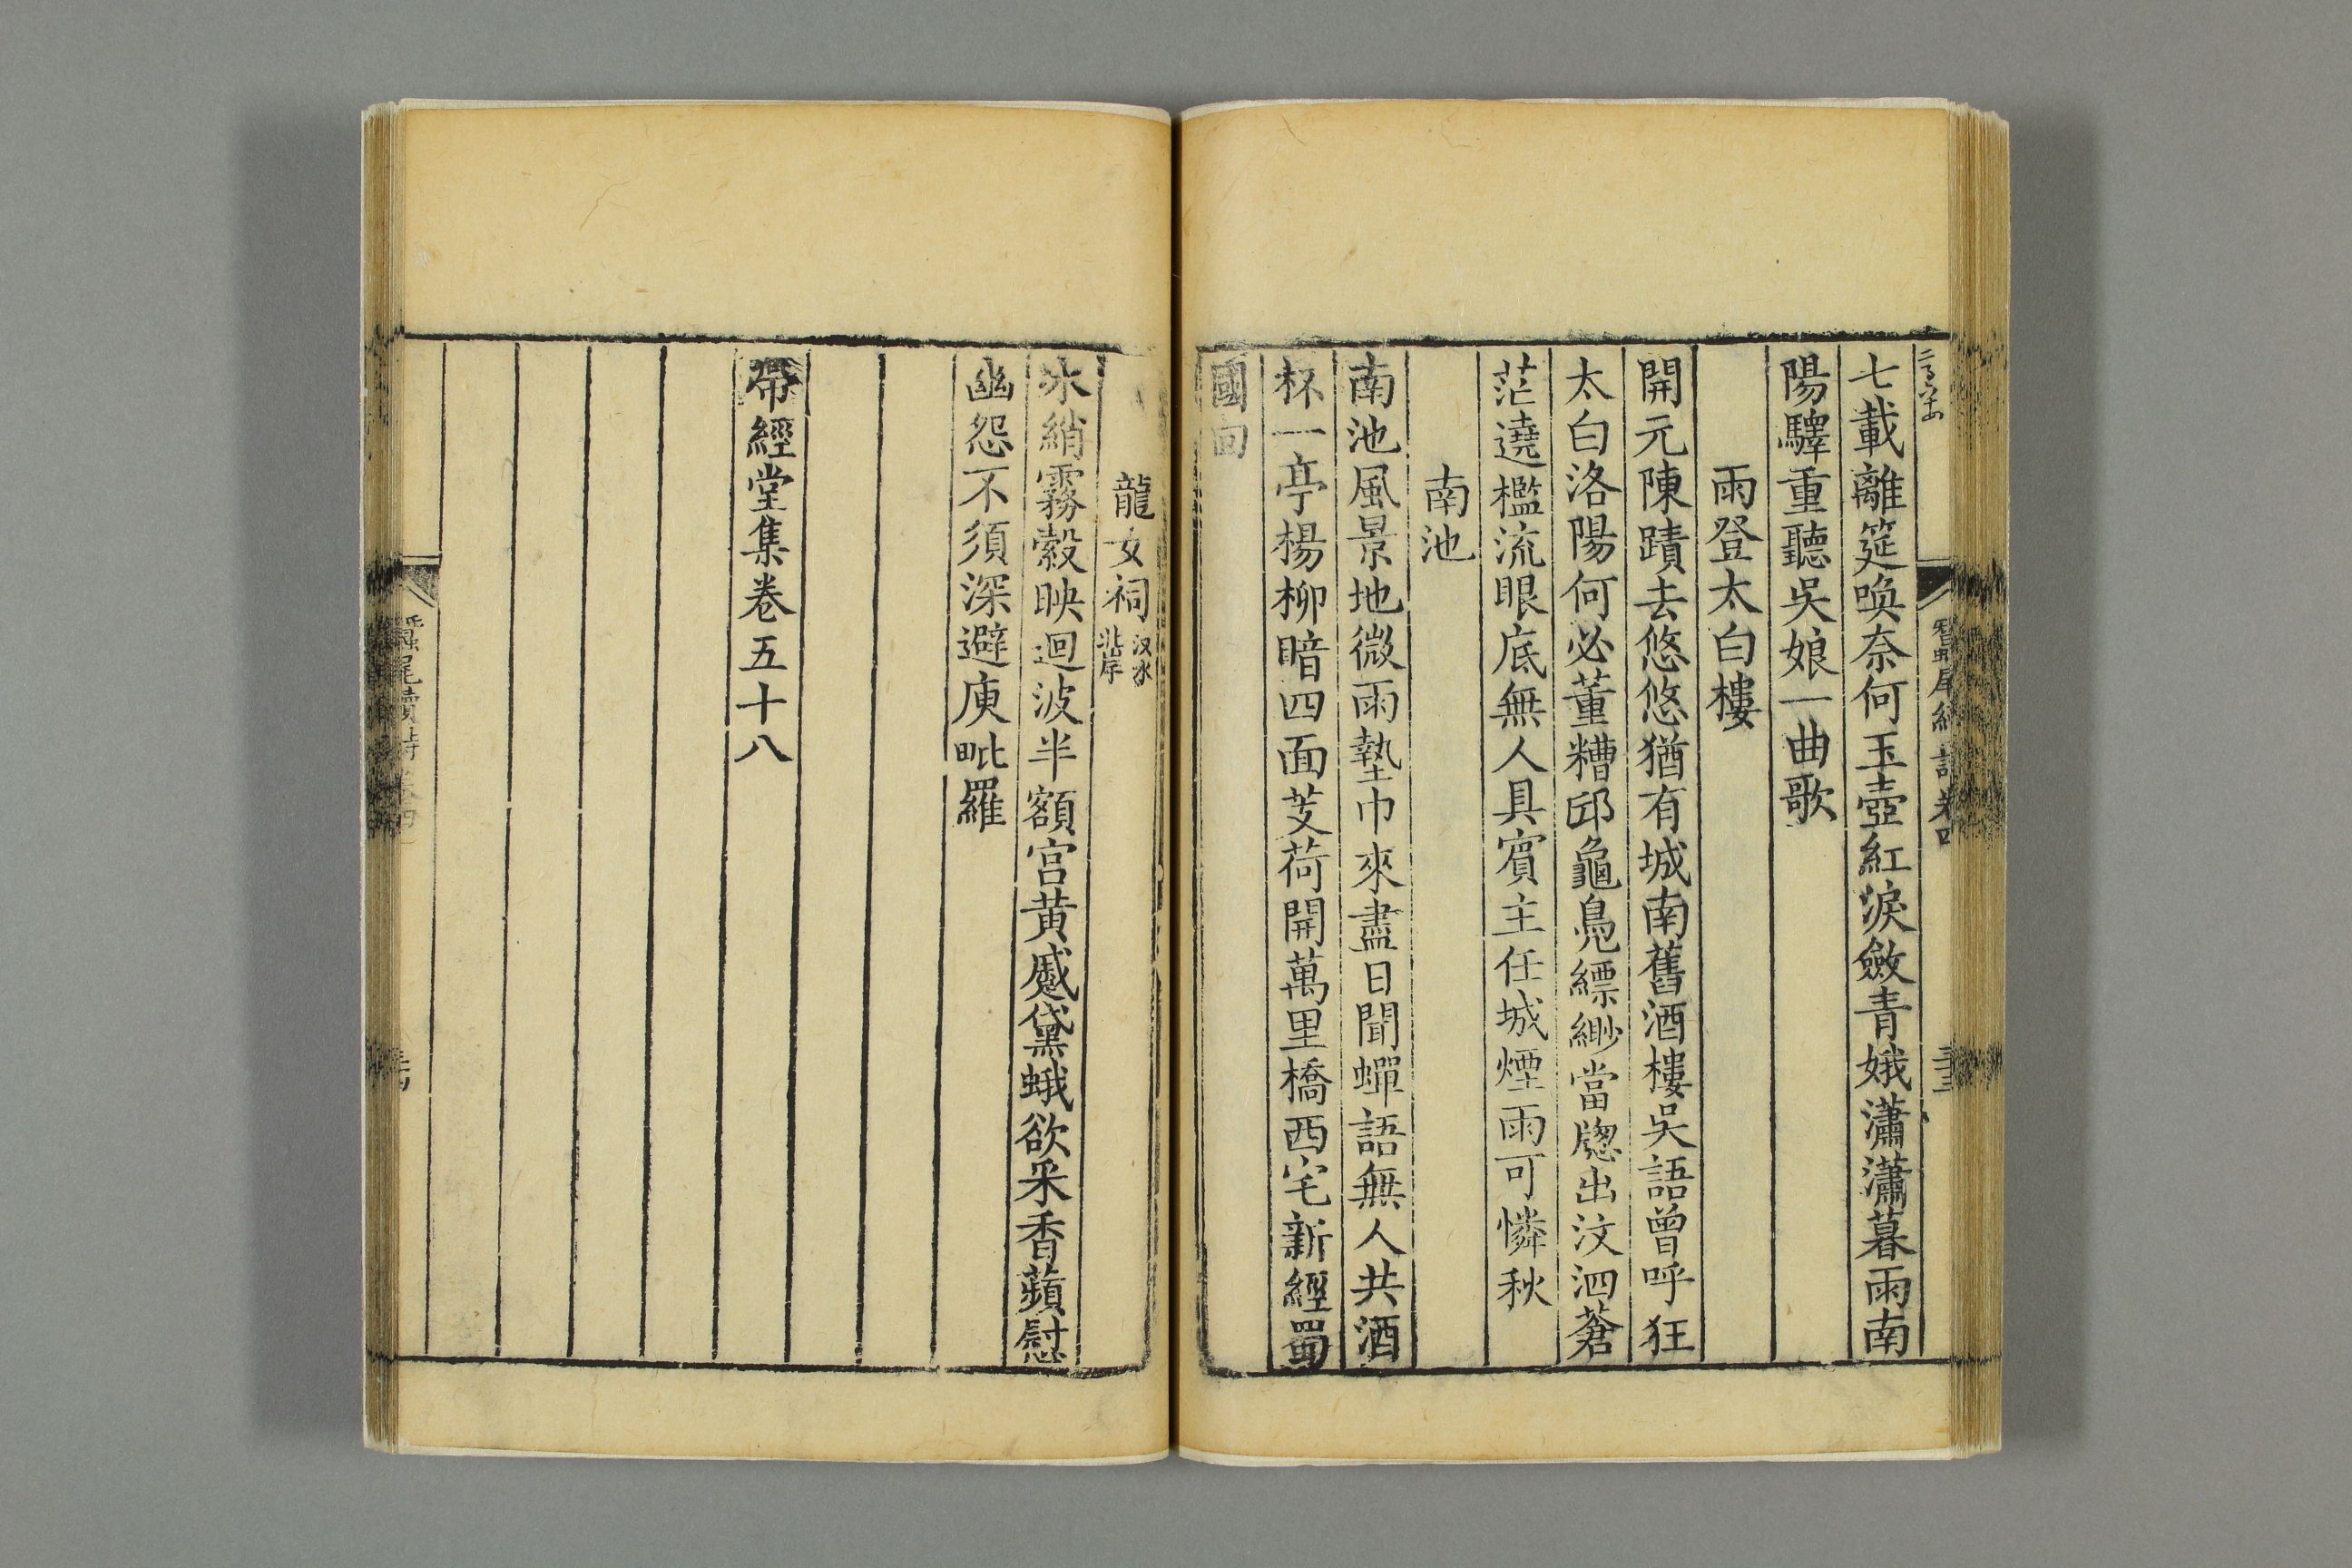 七載離筵喚奈何玉壺紅淚斂青娥瀟瀟暮雨南
陽驛重聽吳娘一曲歌
雨登太白樓
開元陳蹟去悠悠猶有城南舊酒樓吳語曾呼狂
太白洛陽何必董糟邱龜鳧縹緲當牕出汶泗蒼
茫遶檻流眼底無人具賓主任城煙雨可憐秋
南池
南池風景地微雨墊巾來盡日聞蟬語無人共酒
杯一亭楊柳暗四面芰荷開萬里橋西宅新經蜀
國回
龍女祠汶水
北岸
冰綃霧縠映迴波半額宮黃蹙黛蛾欲采香蘋慰
幽怨不須深避庾毗羅
帶經堂集卷五十八
蠶尾續詩卷四